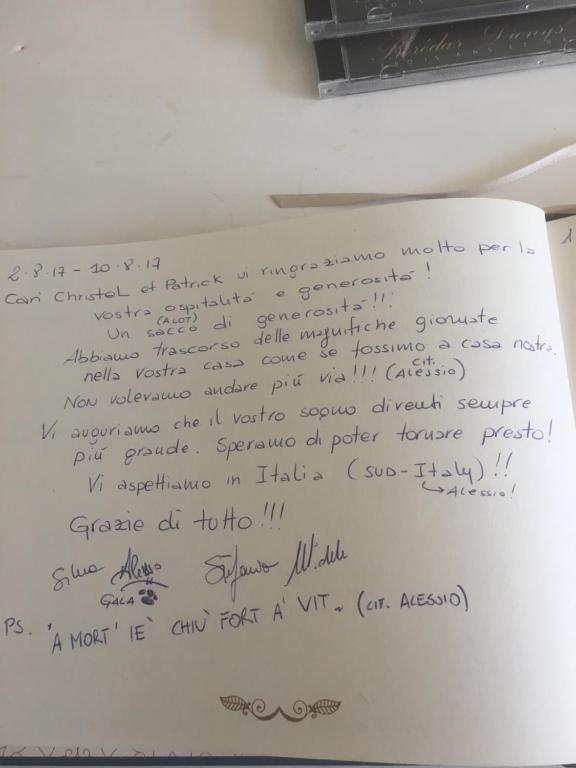 Brédas Dionys
TROIS ANS
2.8.17 - 10.8.17
Cari Christel et Patrick vi ringraziamo molto per la
vostra ospitalità e generosità!
Un sacco (ALOT) di generosità!!!
Abbiamo trascorso delle magnifiche giornate
nella vostra casa come se fossimo a casa nostra.
Non volevamo andare più via!!! (CIT. ALESSIO)
Vi auguriamo che il vostro sogno diventi sempre
più grande. Speriamo di poter tornare presto!
Vi aspettiamo in Italia (SUD-Italy)!!
Alessio!
Grazie di tutto!!!
Silvia Alessio Stefano Michele
GALA
PS. "A MORT' IE' CHIÙ FORT A' VIT" (CIT. ALESSIO)